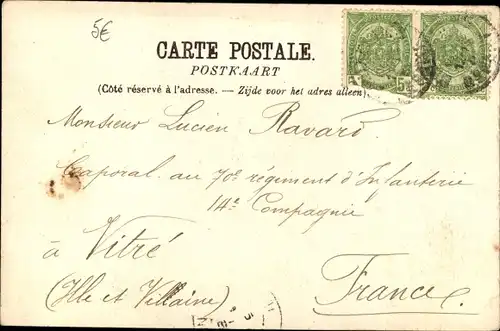 5€
CARTE POSTALE.
POSTKAART
(Côté réservé à l'adresse. — Zijde voor het adres alleen)
Monsieur Lucien Ravard
Caporal au 70e régiment d'Infanterie
14e Compagnie
à Vitré
(Ille et Villaine)
France